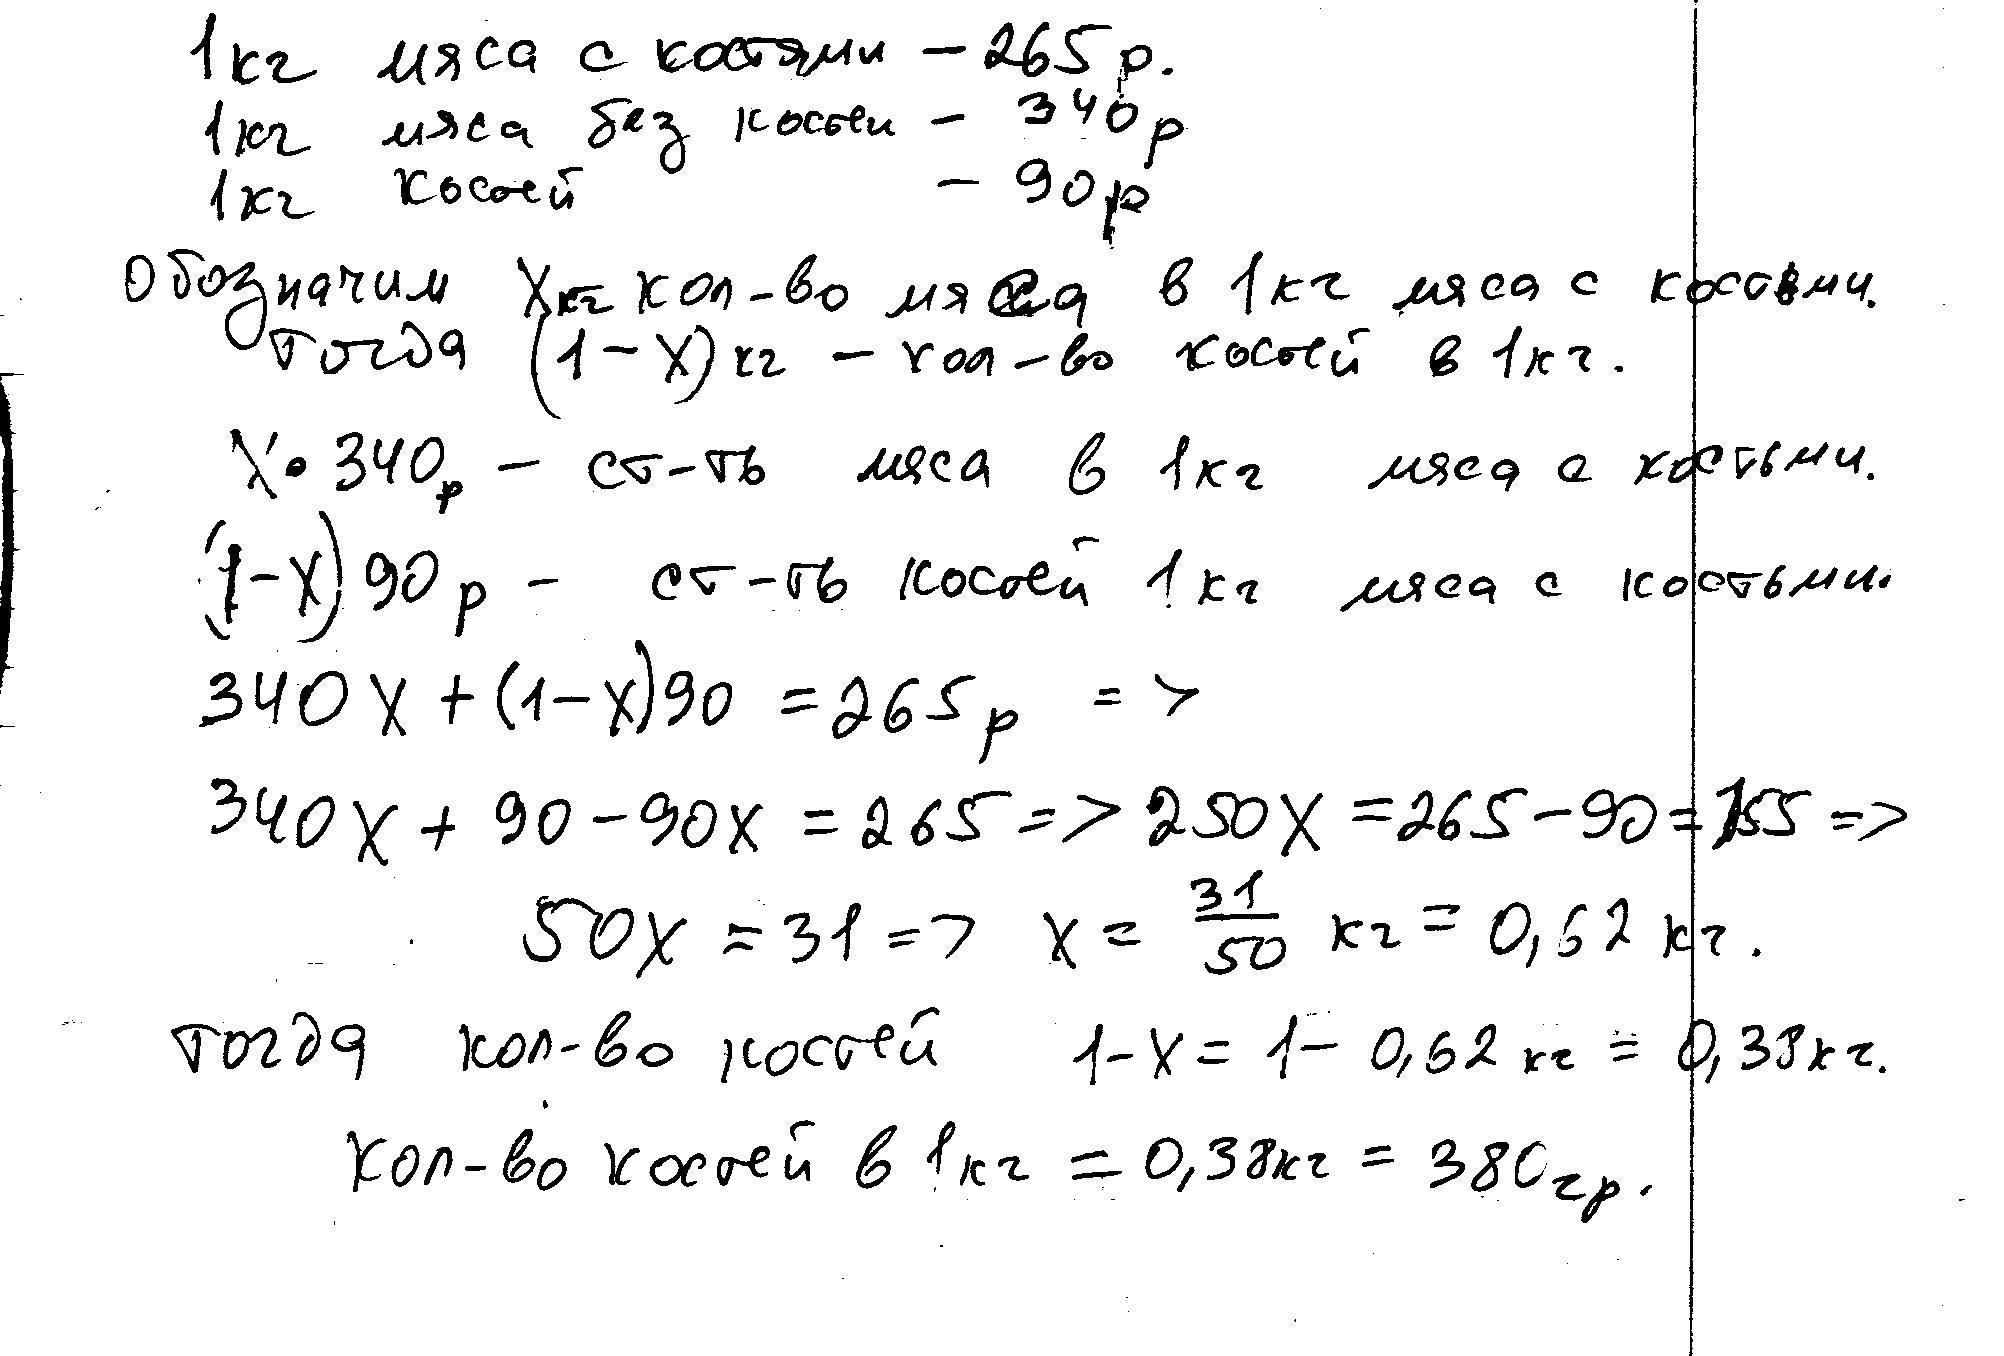 1кг мяса с костями - 265 р.
1кг мяса без костей - 340 р
1кг костей - 90 р
Обозначим X кг кол-во мяса в 1кг мяса с костьми.
тогда (1 - X) кг - кол-во костей в 1кг.
X • 340 р - ст-ть мяса в 1кг мяса с костьми.
(1-X) 90 р - ст-ть костей 1кг мяса с костьми.
340 X + (1-X) 90 = 265 р =>
340 X + 90 - 90 X = 265 => 250 X = 265 - 90 = 155 =>
50 X = 31 => X = 31/50 кг = 0,62 кг.
тогда кол-во костей 1-X = 1- 0,62 кг = 0,38 кг.
Кол-во костей в 1кг = 0,38 кг = 380 гр.